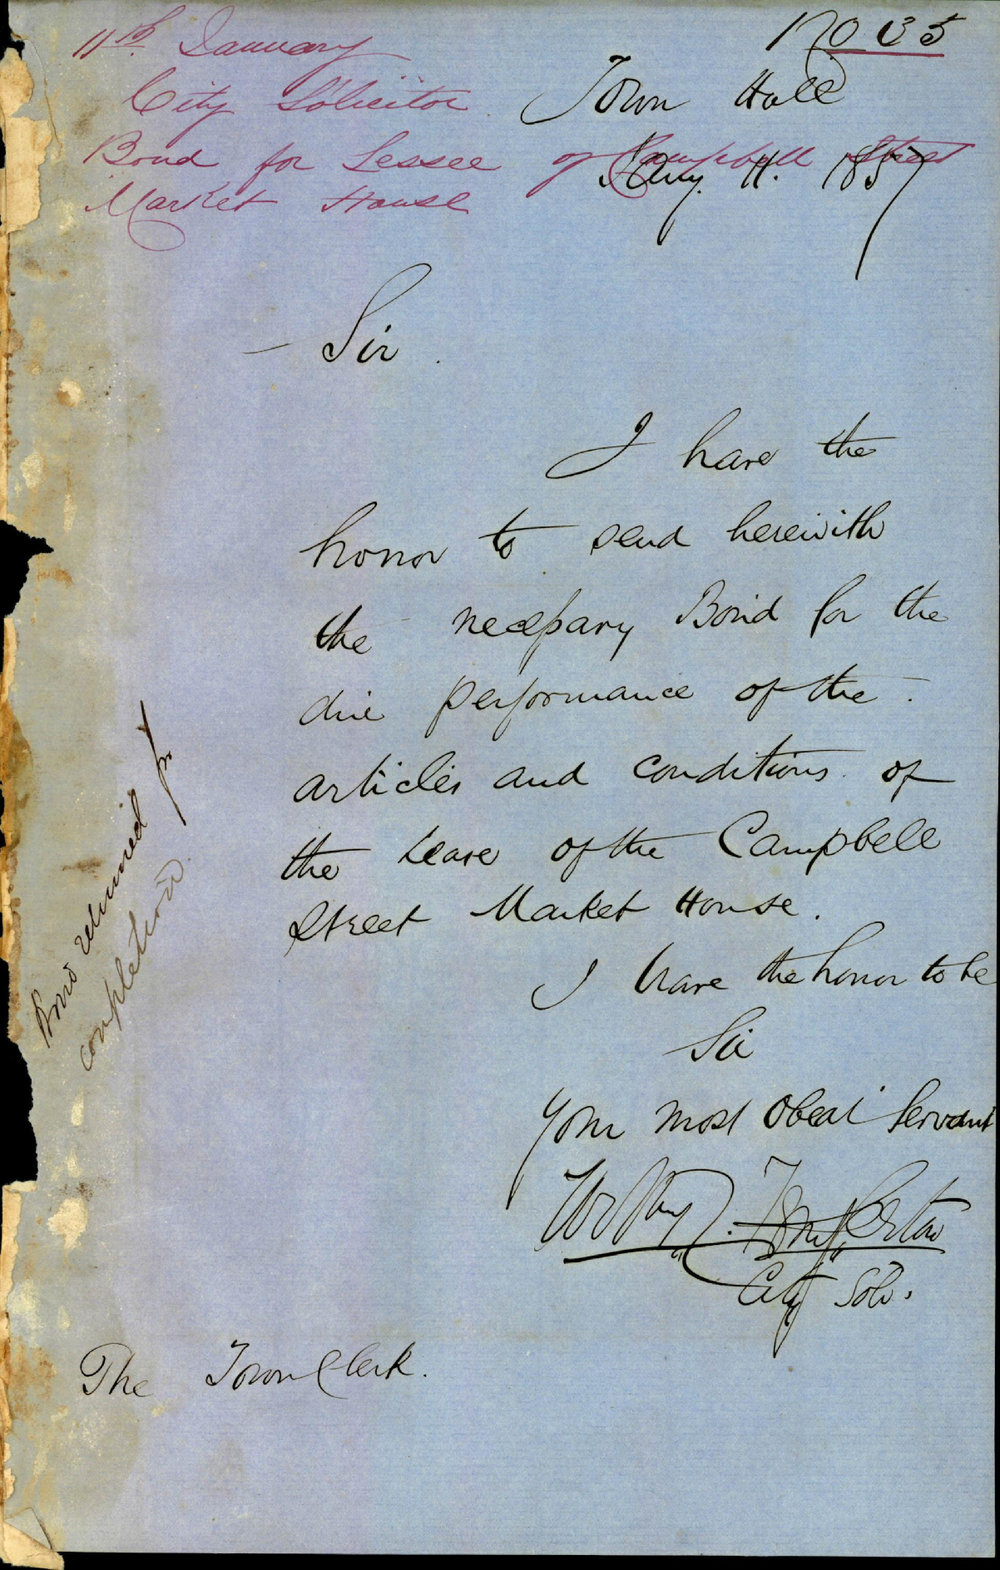 11th January
City Solicitor
Bond for Lessee of Campbell Street
Market House
No 35
Town Hall
Jany. 11. 1857
Sir
I have the
honor to send herewith
the necessary Bond for the
due performance of the
articles and conditions of
the Lease of the Campbell
Street Market House.
I have the honor to be
Sir
Your most Obedt Servant
City Solr.
The Town Clerk.
Bond returned for
completion